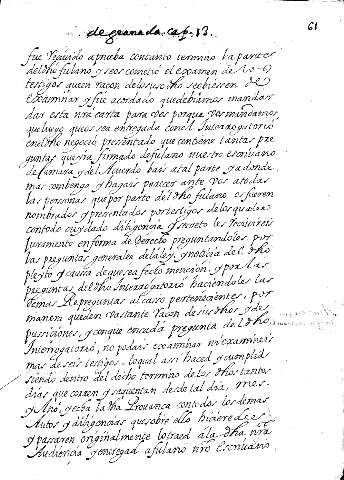 de granada cap. 13.
61
fue recivido a prueba con cierto termino la parte
del dho fulano y se os cometió el examen de los
testigos que en raçon de lo susodho se ubiessen de
examinar y fue acordado que debiamos mandar
dar esta nra carta para Vos por que Vos mandamos
que luego que os sea entregada con el Interrogatorio
en el dho negocio presentado que contiene tantas pre
guntas que va firmado de fulano nuestro escrivano
de Camara y del Acuerdo bais a tal parte y adonde
mas combenga y hagais pareçer ante vos a todas
las personas que por parte del dho fulano os fueren
nombrados y presentados por testigos de los quales
con todo cuydado diligencia y secreto les recivireis
Juramento en forma de Derecho preguntandoles por
las preguntas generales de la ley, y noticia del dho
pleyto y causa de que se a fecho mencion, y por las
preguntas del dho Interrogatorio haciendoles las
demas Repreguntas al caso pertenecientes, por
manera que den bastante raçon de sus dhos y de
pussiciones, y con que en cada pregunta de l dho
Interrogatorio, no podais examinar ni examineis
mas de seis testigos, lo qual assi haced y cumplid
siendo dentro del dicho termino de los dhos tantos
dias que corren y se quentan desde tal dia, mes,
y Año, y fecha la dha Provança con todos los demas
Autos y diligencias que sobre ello hicieredes
y passaren originalmente lo traed a la dha nra
Audiencia y entregad a fulano nro Escrivano